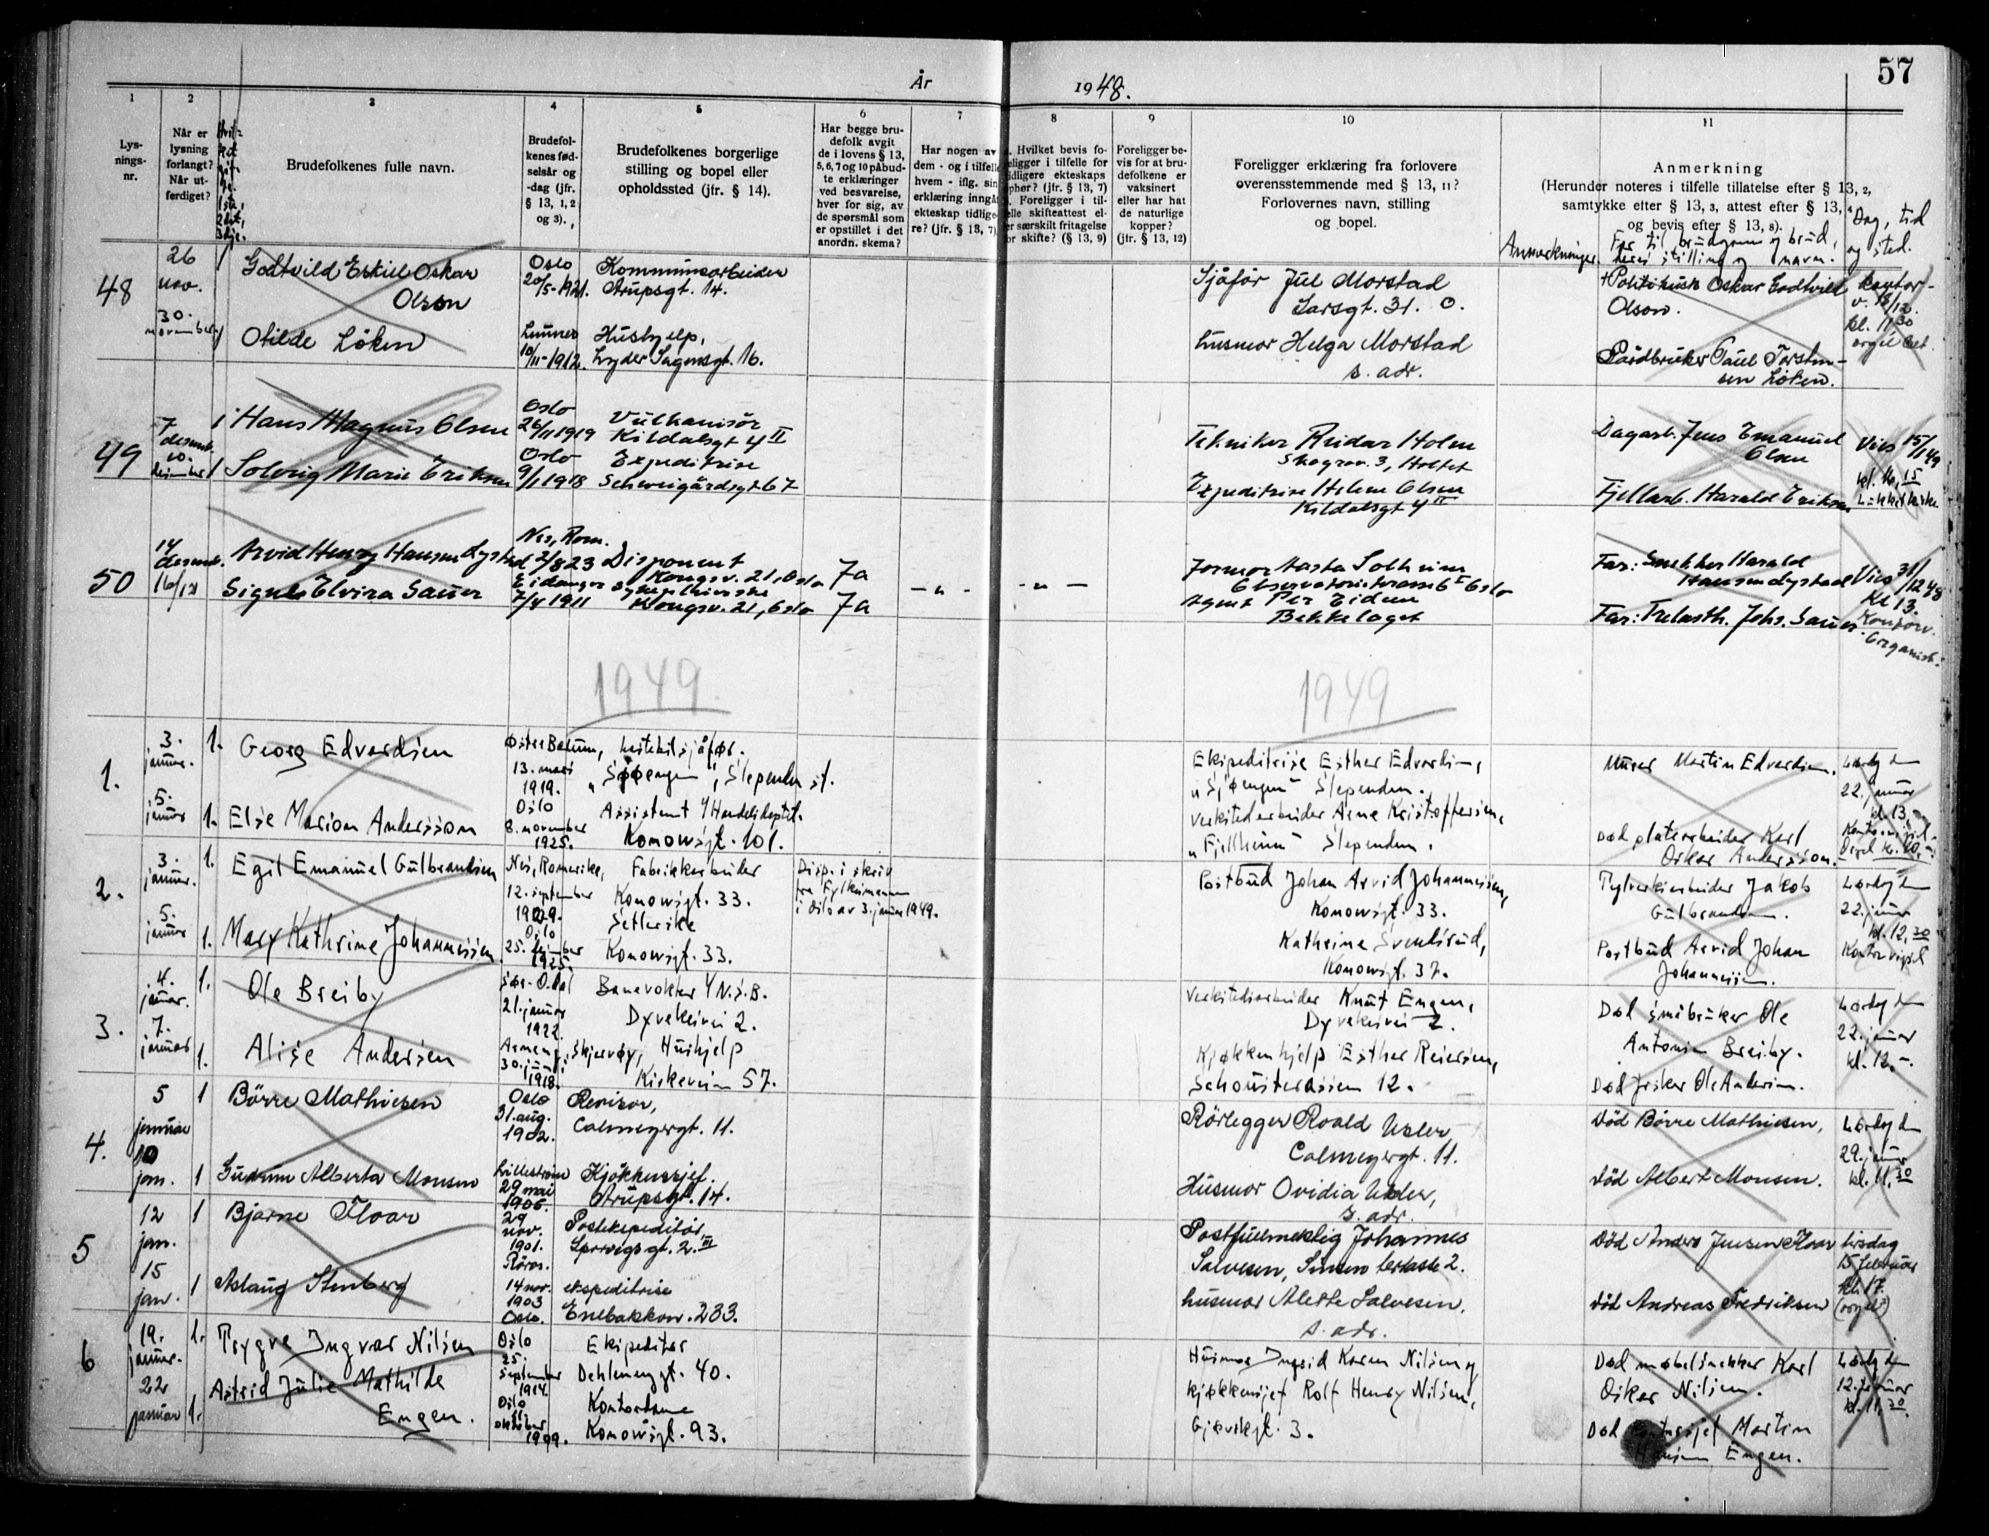 57
År 1948.
1 2 3 4 5 6 7 8 9 10 11
Lys-
nings-
nr.
Når er
lysning
forlangt?
Når ut-
ferdiget?
Brudefolkenes fulle navn.
Brudefol-
kenes fød-
selsår og
-dag (jfr.
§ 13, 1, 2
og 3).
Brudefolkenes borgerlige
stilling og bopel eller
opholdssted (jfr. § 14).
Har begge bru-
defolk avgit
de i lovens § 13,
5, 6, 7 og 10 påbud-
te erklæringer
ved besvarelse,
hver for sig, av
de spørsmål som
er opstillet i det
anordn. skema?
Har nogen av
dem - og i tilfelle
hvem - iflg. sin
erklæring inngåt
ekteskap tidlige-
re? (jfr. § 13, 7).
Hvilket bevis fo-
religger i tilfelle for
tidligere ekteskaps
ophør? (jfr. § 13, 7)
Foreligger i til-
felle skifteattest el-
ler særskilt fritagelse
for skifte? (§ 13, 9)
Foreligger be-
vis for at bru-
defolkene er
vaksinert
eller har hat
de naturlige
kopper?
(jfr. § 13, 12)
Foreligger erklæring fra forlovere
overensstemmende med § 13, 11?
Forlovernes navn, stilling
og bopel.
Anmerkninger.
Anmerkning
(Herunder noteres i tilfelle tillatelse efter § 13, 2,
samtykke efter § 13, 3, attest efter § 13,
og bevis efter § 13, 8).
Far til brudgom og brud,
deres stilling og navn.
Dag, tid
og sted.
48
26
nov.
30.
november
1
Godtvild Eskill Oskar
Olson
Oslo
20/5-1921.
Kommunearbeider
Arupsgt. 14.
Sjåfør Jul Morstad
Sarsgt. 31. O.
Oskar Godtvild
Olson.
kontor-
v. 18/12.
kl. 11 30
1
Otilde Löken
Lunner
10/11-1912.
Hushjelp,
Lyder Sagensgt. 16.
Husmor Helga Morstad
s. adr.
Gårdbruker Paul Torsten-
sen Löken.
49
7
desemb.
10.
desember
1
Hans Magnus Olsen
Oslo
26/11 1919
Vulkanisör
Kildalsgt 4 II
Tekniker Reidar Holm
Skogrov. 3, Holtet
Dagarb. Jens Emanuel
Olsen
Vies 15/1 49
kl. 16,15
1
Solveig Marie Eriksen
Oslo
9/1 1918
Expeditrise
Schweigårdsgt 67
Expeditrise Helene Olsen
Kildalsgt 4 II
Fjellarb. Harald Eriksen
50
14
desemb.
16/12
Arvid Henry Hansen Lystad
Nes, Rom.
2/8 23
Disponent
Kongsv. 21, Oslo
Ja
- " -
- " -
Observatorieterrasse 6 I Oslo
Far: Snekker Harald
Hansen Lystad
Vies 31/12 48
Kl 13.
Signe Elvira Sauer
Eidanger
7/4 1911
Sykepleierske
Kongsv. 21, Oslo
Ja
Agent Per Eidem
Bekkelaget
Far: Trelasth. Johs. Sauer.
Kontorv.
Organist.
1949
1949
1.
3.
januar.
5.
januar
1.
Georg Edvardsen
Østre Bærum,
13. mars
1919.
Lastebilsjåfør.
"Sjøengen", Slependen st.
Ekspeditrise Esther Edvardsen,
"Sjøengen" Slependen.
Murer Martin Edvardsen.
Lørdag den
22. januar
kl. 13,-
1.
Else Marion Andersson
Oslo
8. november
1925.
Assistent i/ Handelsdeptet.
Konowsgt. 101.
Verkstedarbeider Arne Kristoffersen,
"Fjellheim" Slependen.
Død platearbeider Karl
Oskar Andersson.
2.
3.
januar.
5.
januar
1.
Egil Emanuel Gulbrandsen
Nes, Romerike,
12. september
1929.
Fabrikkarbeider
Konowsgt. 33.
Disp. i skriv
fra Fylkesmannen
i Oslo av 3. januar 1949.
Postbud Johan Arvid Johannessen,
Konowsgt. 33.
Jakob
Gulbrandsen.
Lørdag den
22. januar
kl. 12,30
Kontorvigsel
1.
Mary Kathrine Johannessen.
Oslo
1925.
Konowsgt. 33.
Kathrine Svendsrud,
Konowsgt. 37.
Postbud Arvid Johan
Johannessen.
3.
4.
januar.
7.
januar
1.
Ole Breiby
Sør-Odal
21. januar
1922.
Banevokter i/ N.S.B.
Dyvekesvei 2.
Verkstedsarbeider Knut Engen,
Dyvekesvei 2.
Død småbruker Ole
Antonsen Breiby.
Lørdag den
22. januar
kl. 12,-
1.
Alise Andersen
30. juni
1918.
Skjervøy, Hushjelp
Kirkeveien 57.
Kjøkkenhjelp Esther Reiersen,
Schousterassen 12.
Død fisker Ole Andersen.
4.
5
januar
10
jan.
1
Börre Mathiesen
Oslo
31. aug.
1902.
Revisor,
Calmeyergt. 11.
Rörlegger Roald
Calmeyergt. 11.
Död Börre Mathiesen,
Lørdag den
29. januar
kl. 11,30
1
Gudrun Alberta Monsen
Lilleström
29 mai
1906.
Kjökkensjef.
Arupsgt. 14.
Husmor Ovidia
s. adr.
Död Albert Monsen.
5
12
jan.
15
jan.
1
Bjarne Floar
29
nov.
1901.
Röros.
Postekspeditör,
Sporveisgt. 2. III
Postfullmektig Johannes
Salvesen,
Död Anders Jensen Floar
tirsdag
15 februar
kl. 17.
(orgel)
1
Aslaug Stenberg
14 nov.
1903
Oslo.
ekspeditrise
Enebakkvn. 233.
husmor Alette Salvesen.
s. adr.
död Andreas Fredriksen
6
19.
januar.
22
januar
1.
Trygve Ingvar Nilsen
Oslo
25.
september
1914.
Ekspeditør
Dehlenenggt. 40.
Husmor Ingrid Karen Nilsen og
kjøkkensjef Rolf Henry Nilsen,
Gjøvikgt. 3.
Død møbelsnekker Karl
Oskar Nilsen.
Lørdag den
12. februar
kl. 11,30.
1.
Astrid Julie Mathilde
Engen.
Oslo
11.
oktober
1909.
Kontordame
Konowsgt. 93.
Død Martin
Engen.